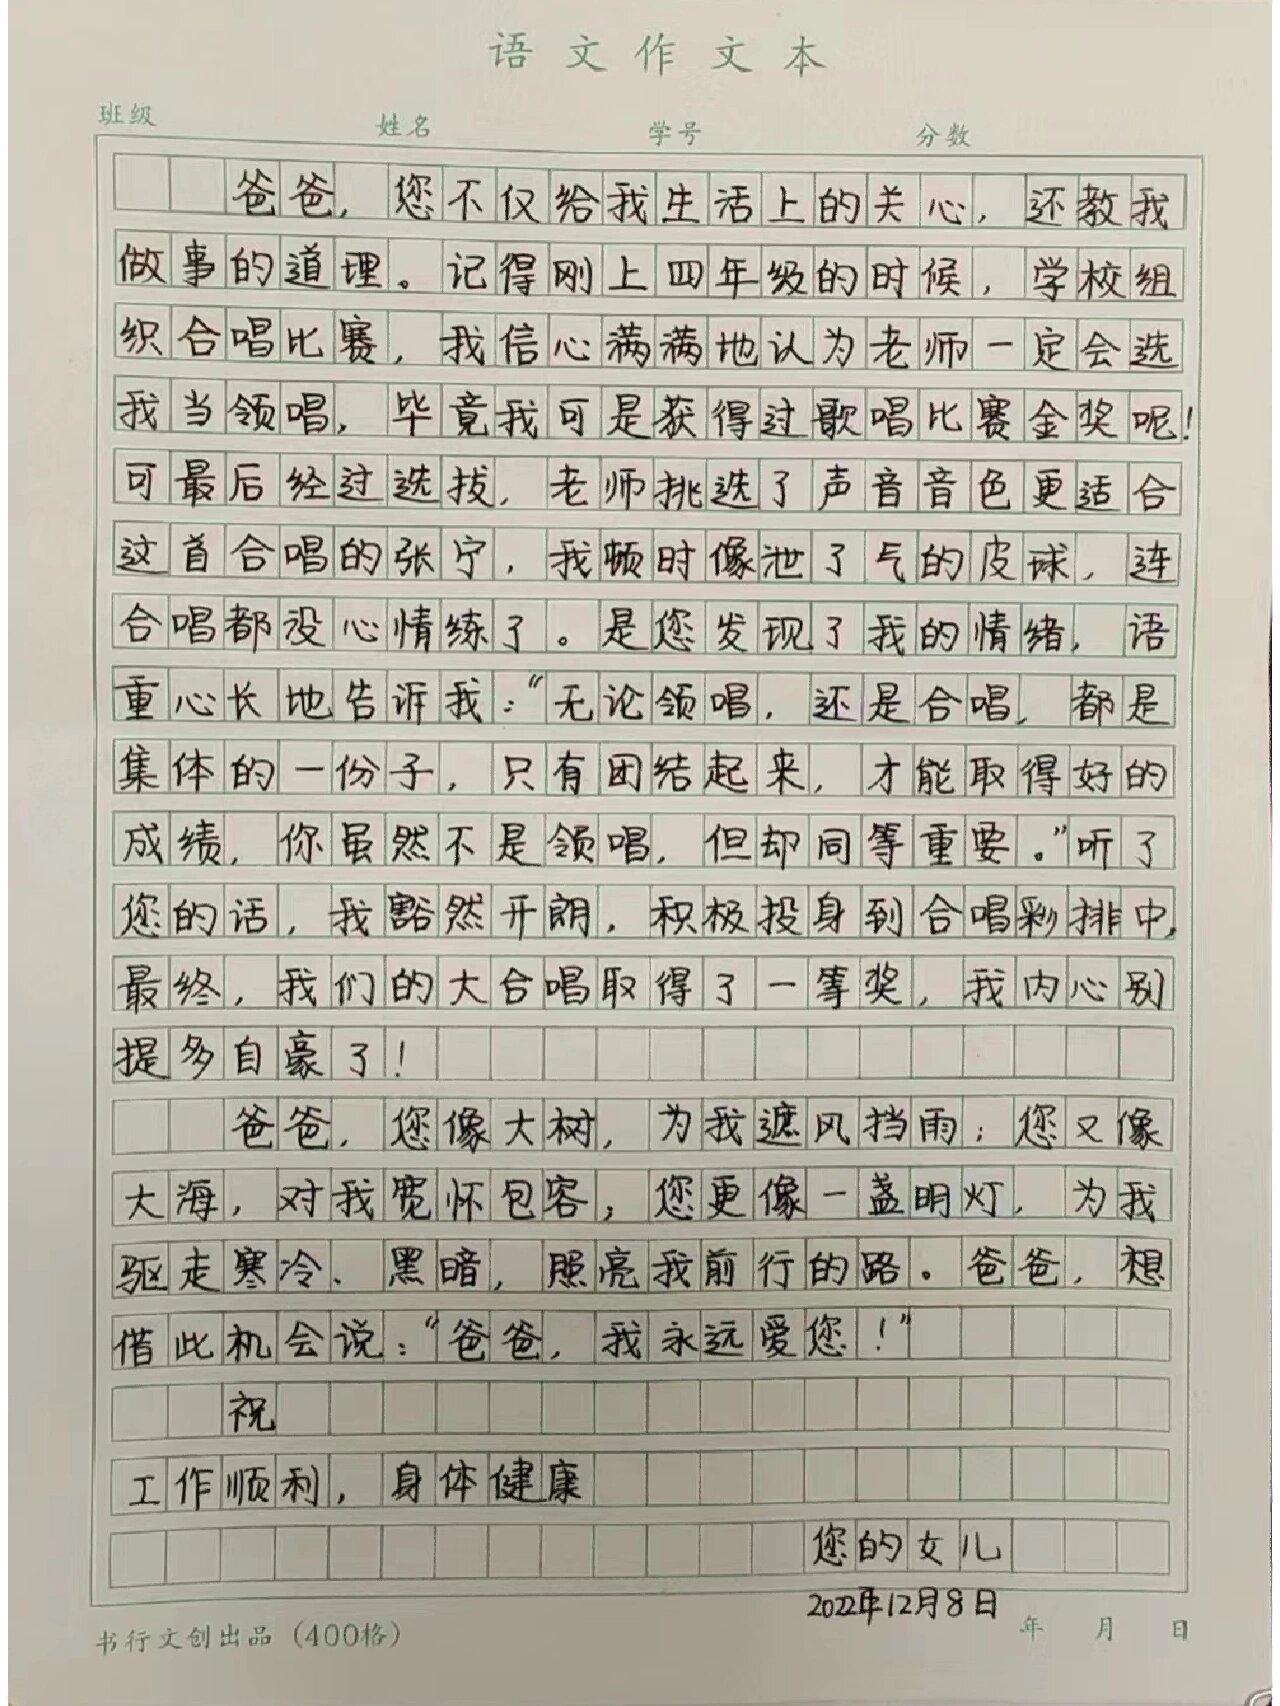 语文作文本
班级 姓名 学号 分数
爸爸，您不仅给我生活上的关心，还教我
做事的道理。记得刚上四年级的时候，学校组
织合唱比赛，我信心满满地认为老师一定会选
我当领唱，毕竟我可是获得过歌唱比赛金奖呢！
可最后经过选拔，老师挑选了声音音色更适合
这首合唱的张宁，我顿时像泄了气的皮球，连
合唱都没心情练了。是您发现了我的情绪，语
重心长地告诉我：“无论领唱，还是合唱，都是
集体的一份子，只有团结起来，才能取得好的
成绩，你虽然不是领唱，但却同等重要。”听了
您的话，我豁然开朗，积极投身到合唱彩排中，
最终，我们的大合唱取得了一等奖，我内心别
提多自豪了！
爸爸，您像大树，为我遮风挡雨；您又像
大海，对我宽怀包容；您更像一盏明灯，为我
驱走寒冷、黑暗，照亮我前行的路。爸爸，想
借此机会说：“爸爸，我永远爱您！”
祝
工作顺利，身体健康
您的女儿
2022年12月8日
书行文创出品（400格） 年 月 日